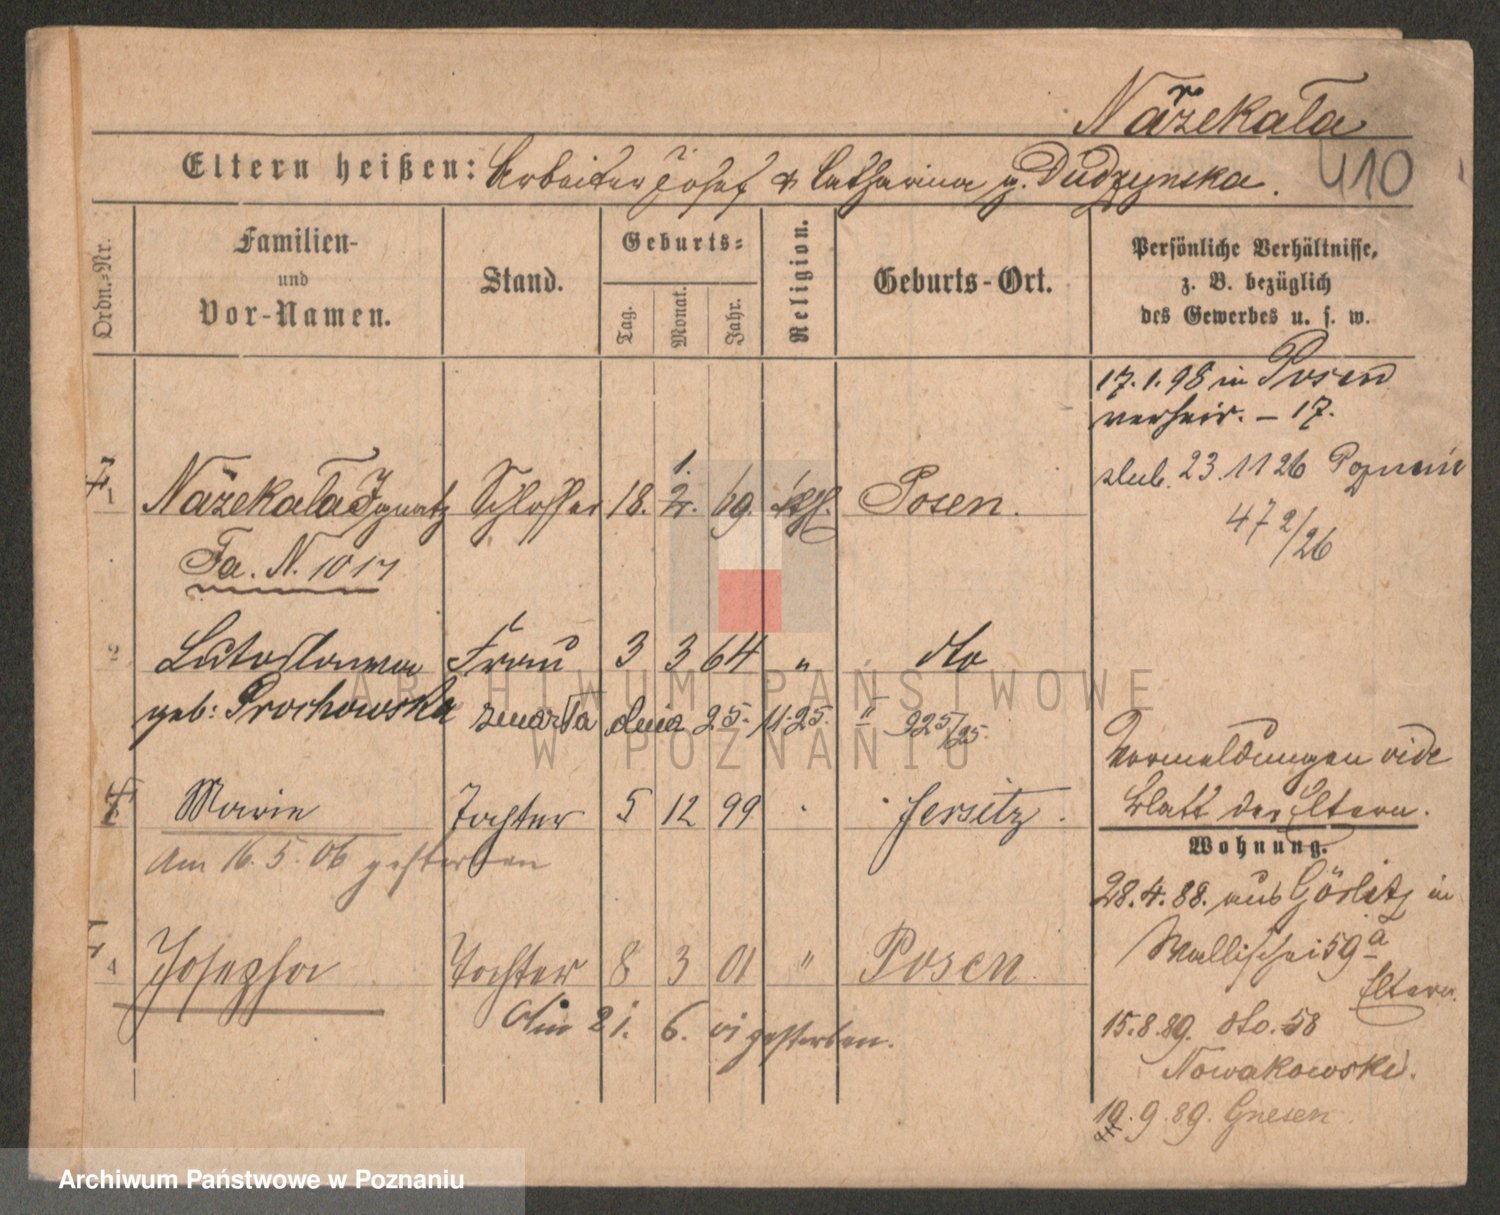 Nařzekała
Eltern heißen: Arbeiter Josef & Catharina g. Dudzynska.
410
Ordn.-Nr.
Familien-
und
Vor-Namen.
Stand.
Geburts-
Tag. Monat. Jahr.
Religion.
Geburts-Ort.
Persönliche Verhältnisse,
z. B. bezüglich
des Gewerbes u. s. w.
17. 1. 98 in Posen
verheir. – 17.
ślub. 23.11 26 Poznanie
472/26
1 Nařzekała Ignatz Schlosser 18. 1. 2. 69. kath. Posen.
Fa. N. 1017
2 Frau 3 3 64 " dto
geb: Prochowska zmarła dnia 25. 11. 25. " 925/25.
Vermeldungen vide
Blatt der Eltern.
Marie Tochter 5 12 99 Jersitz.
Am 16. 5. 06 gestorben
Wohnung.
28. 4. 88. aus Görlitz in
Wallischei 59 a
Eltern.
4 Josepha Tochter 8 3 01 " Posen
Am 21. 6. 01 gestorben.
15. 8. 89. dto. 58
Nowakowski.
19. 9. 89. Gnesen
ARCHIWUM PAŃSTWOWE
W POZNANIU
Archiwum Państwowe w Poznaniu